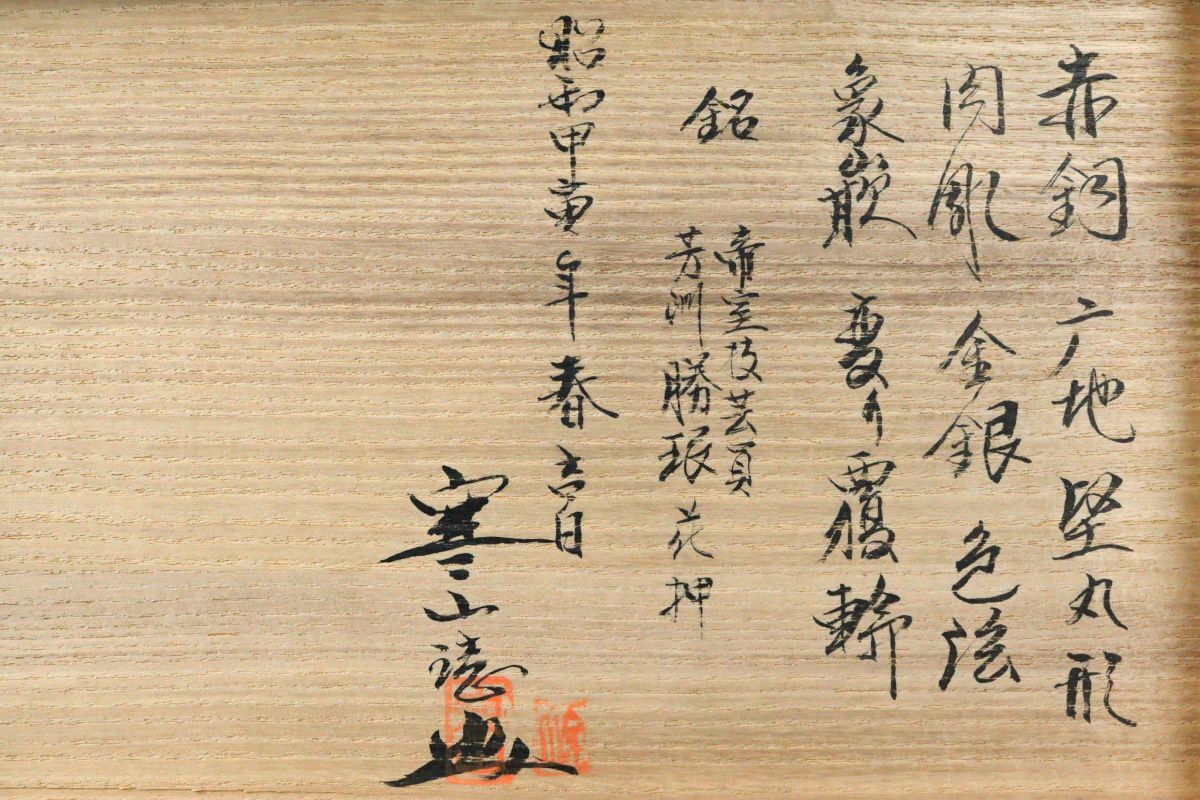 赤銅广地竪丸形
肉彫金銀色絵
象嵌変り覆輪
銘
帝室技芸員
芳洲勝珉花押
昭和甲寅年春吉日
寒山誌